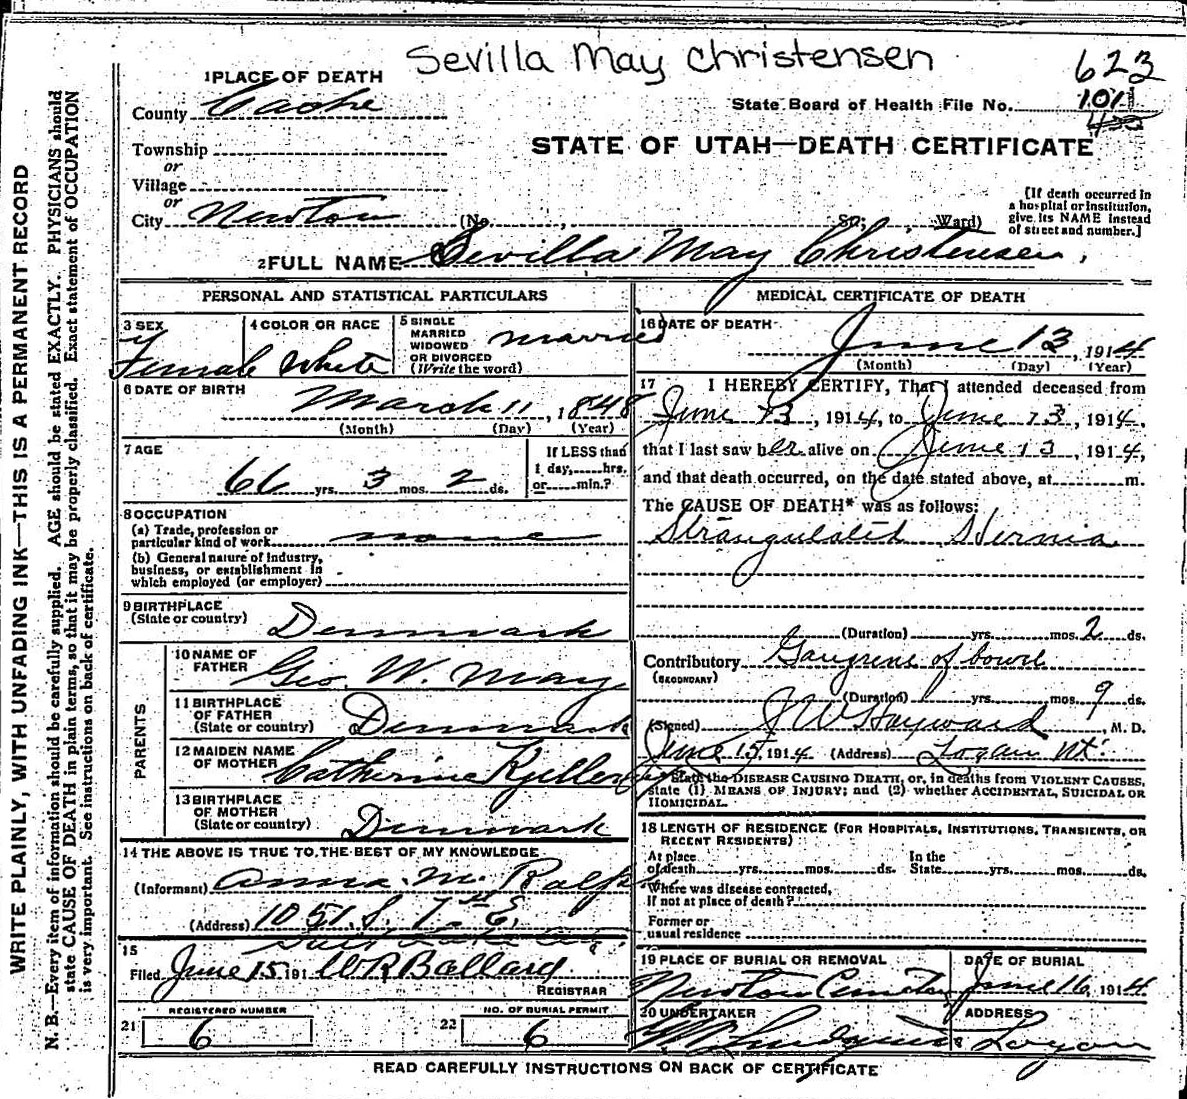 Sevilla May Christensen
623
1 PLACE OF DEATH
County Cache
State Board of Health File No. 101
STATE OF UTAH—DEATH CERTIFICATE
Township
or
Village
or
City Newton (No. , St.; Ward)
[If death occurred in a hospital or institution, give its NAME instead of street and number.]
2 FULL NAME Sevilla May Christensen,
PERSONAL AND STATISTICAL PARTICULARS
3 SEX Female
4 COLOR OR RACE White
5 SINGLE MARRIED WIDOWED OR DIVORCED (Write the word) married
6 DATE OF BIRTH March 11, 1848
(Month) (Day) (Year)
7 AGE 66 yrs. 3 mos. 2 ds.
If LESS than 1 day, hrs. or min.?
8 OCCUPATION
(a) Trade, profession or particular kind of work none
(b) General nature of industry, business, or establishment in which employed (or employer)
9 BIRTHPLACE (State or country) Denmark
PARENTS
10 NAME OF FATHER Geo. W. May
11 BIRTHPLACE OF FATHER (State or country) Denmark
12 MAIDEN NAME OF MOTHER Catherine
13 BIRTHPLACE OF MOTHER (State or country) Denmark
14 THE ABOVE IS TRUE TO THE BEST OF MY KNOWLEDGE
(Informant) Anna M. Ralph
(Address) 1051 S. 7th E.
Salt Lake City
15 Filed June 15 191 W R Ballard
REGISTRAR
REGISTERED NUMBER
21 6
NO. OF BURIAL PERMIT
22 6
MEDICAL CERTIFICATE OF DEATH
16 DATE OF DEATH June 13, 1914
(Month) (Day) (Year)
17 I HEREBY CERTIFY, That I attended deceased from
June 13, 1914, to June 13, 1914,
that I last saw her alive on June 13, 1914,
and that death occurred, on the date stated above, at m.
The CAUSE OF DEATH* was as follows:
Strangulated Hernia
(Duration) yrs. mos. 2 ds.
Contributory Gangrene of bowel
(SECONDARY)
(Duration) yrs. mos. 9 ds.
(Signed) J W Hayward, M. D.
June 15, 1914 (Address) Logan Ut.
*State the DISEASE CAUSING DEATH, or, in deaths from VIOLENT CAUSES, state (1) MEANS OF INJURY; and (2) whether ACCIDENTAL, SUICIDAL OR HOMICIDAL.
18 LENGTH OF RESIDENCE (FOR HOSPITALS, INSTITUTIONS, TRANSIENTS, OR RECENT RESIDENTS)
At place of death yrs. mos. ds. In the State yrs. mos. ds.
Where was disease contracted, if not at place of death?
Former or usual residence
19 PLACE OF BURIAL OR REMOVAL Newton Cemetery
DATE OF BURIAL June 16, 1914
20 UNDERTAKER
ADDRESS Logan
READ CAREFULLY INSTRUCTIONS ON BACK OF CERTIFICATE
WRITE PLAINLY, WITH UNFADING INK—THIS IS A PERMANENT RECORD
N. B.—Every item of information should be carefully supplied. AGE should be stated EXACTLY. PHYSICIANS should
state CAUSE OF DEATH in plain terms, so that it may be properly classified. Exact statement of OCCUPATION
is very important. See instructions on back of certificate.